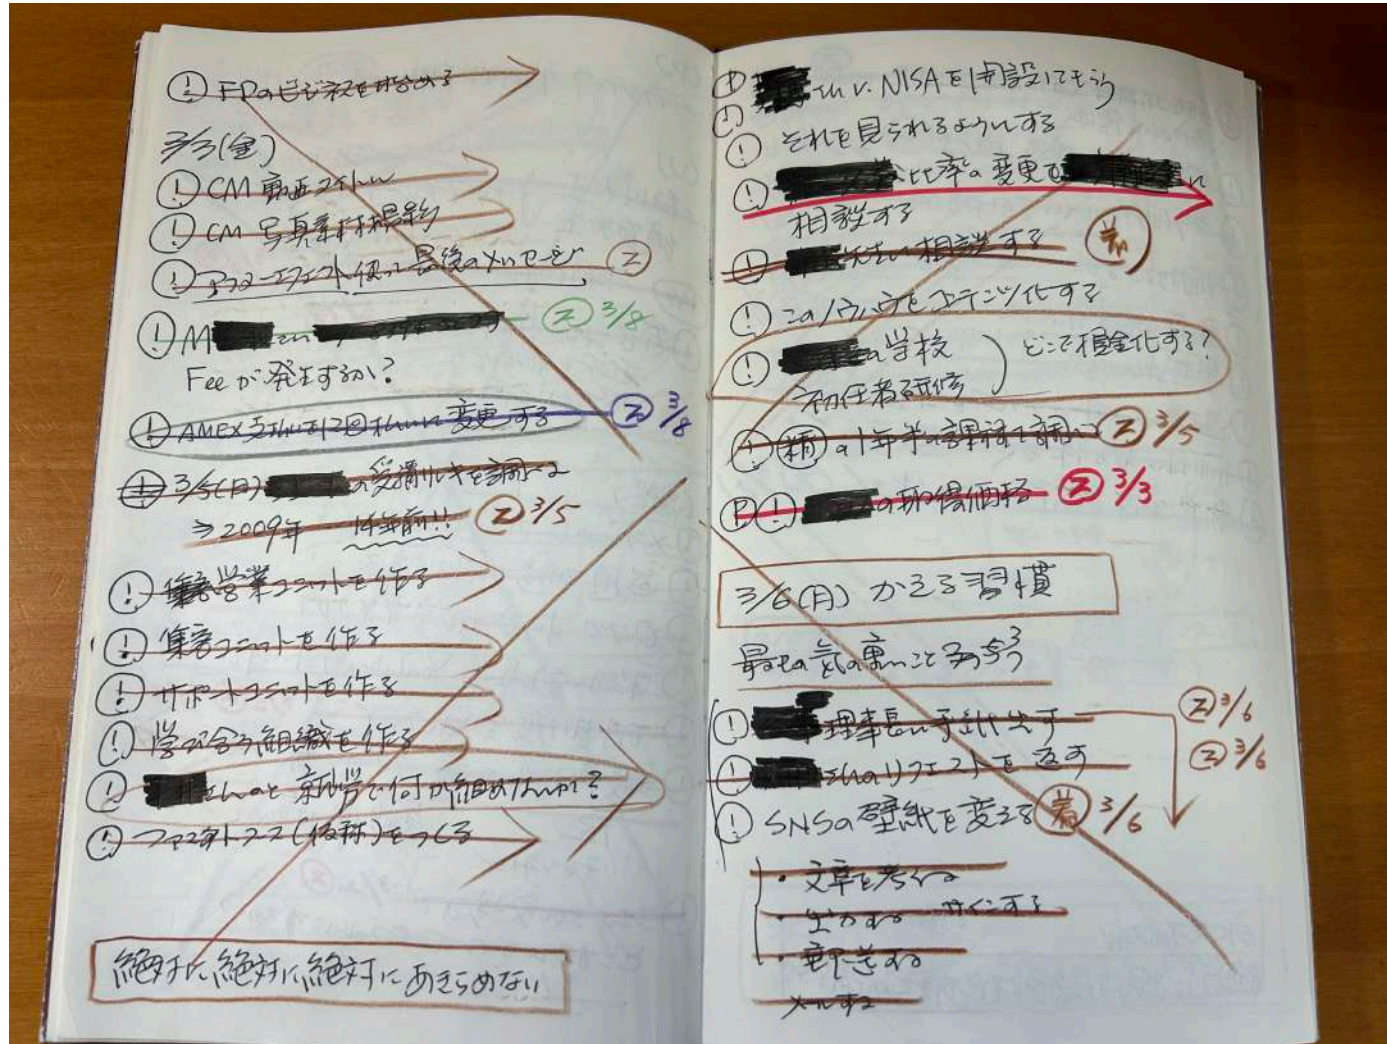 ! FPのビジネスを始める
3/3(金)
! CM 動画
! CM 写真素材撮影
! アフターエフェクト使って最後のメッセージ Z
! M Z 3/8
Feeが発生するか?
! AMEX支払を12回払いに変更する Z 3/8
! 3/5(日) の受講 を調べる
⇒2009年 14年前!! Z 3/5
! 営業ユニットを作る
! 集客ユニットを作る
! サポートユニットを作る
! 学び合う組織を作る
! さんのと 就労で何か組めないか?
! (仮称)をつくる
絶対に絶対に絶対にあきらめない
! NISAを開設してもらう
!
! それを見られるようにする
! 比率の変更を に
相談する
! 先生に相談する 着
! このノウハウをコンテンツ化する
! の学校
初任者研修
どこで損金化する?
! 精 の1年半の課程を調べる Z 3/5
P ! の取得価格 Z 3/3
3/6(月) かえる習慣
最もの気の重いこと 3つ
! 理事長に手紙出す Z 3/6
! さんのリクエストを返す Z 3/6
! SNSの壁紙を変える 着 3/6
・文章を考える
・出力する サインする
・郵送する
メールする